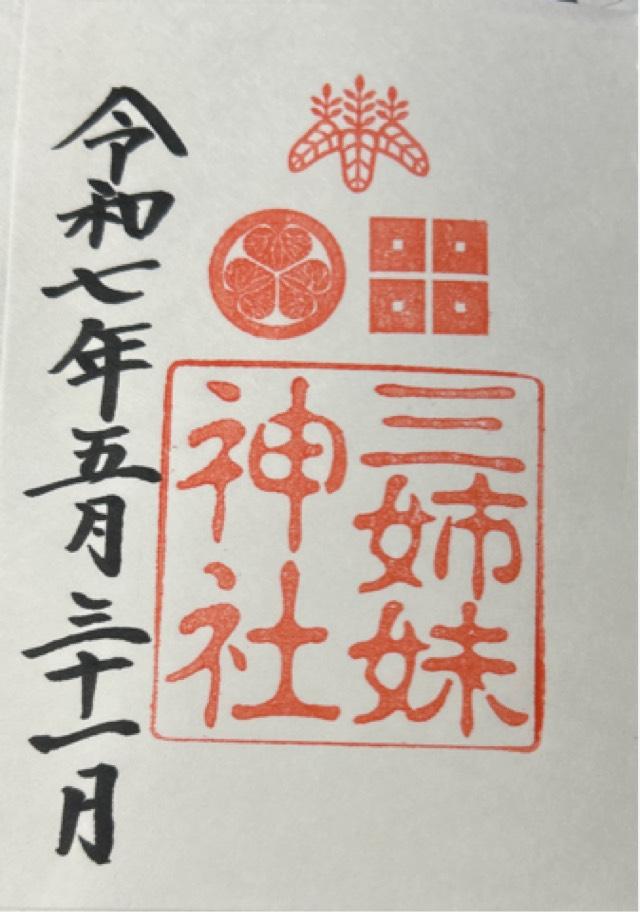 三姉妹
神社
令和七年五月三十一月